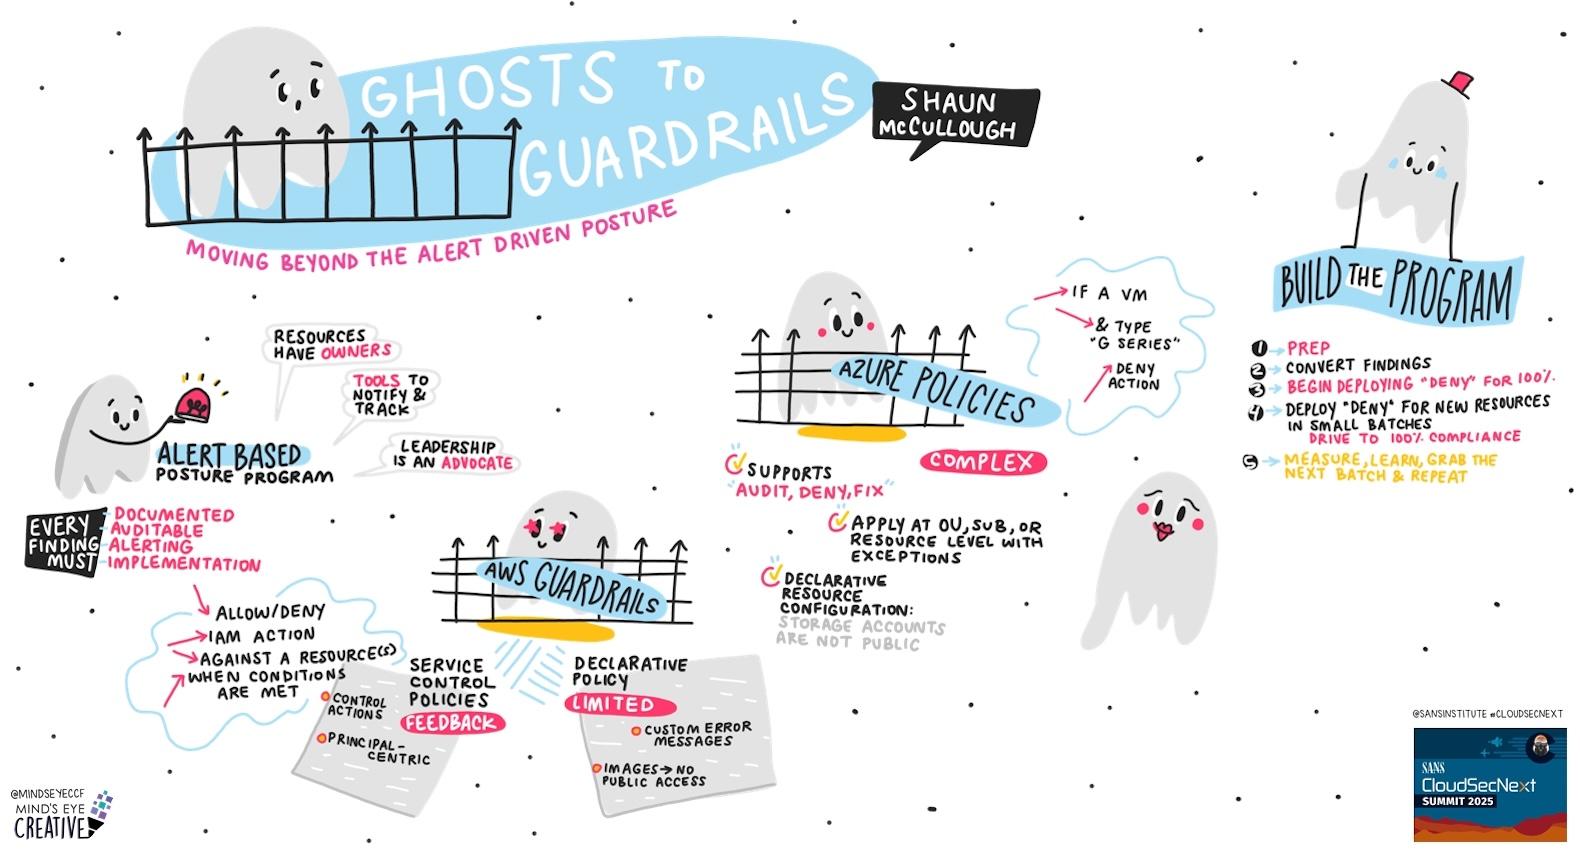 GHOSTS TO
GUARDRAILS
SHAUN
McCULLOUGH
MOVING BEYOND THE ALERT DRIVEN POSTURE
RESOURCES
HAVE OWNERS
TOOLS TO
NOTIFY &
TRACK
LEADERSHIP
IS AN ADVOCATE
ALERT BASED
POSTURE PROGRAM
EVERY
FINDING
MUST
DOCUMENTED
AUDITABLE
ALERTING
IMPLEMENTATION
ALLOW/DENY
IAM ACTION
AGAINST A RESOURCE(S)
WHEN CONDITIONS
ARE MET
AWS GUARDRAILS
SERVICE
CONTROL
POLICIES
FEEDBACK
CONTROL
ACTIONS
PRINCIPAL-
CENTRIC
DECLARATIVE
POLICY
LIMITED
CUSTOM ERROR
MESSAGES
IMAGES→NO
PUBLIC ACCESS
AZURE POLICIES
IF A VM
& TYPE
"G SERIES"
DENY
ACTION
COMPLEX
SUPPORTS
"AUDIT, DENY, FIX"
APPLY AT OU, SUB, OR
RESOURCE LEVEL WITH
EXCEPTIONS
DECLARATIVE
RESOURCE
CONFIGURATION:
STORAGE ACCOUNTS
ARE NOT PUBLIC
BUILD THE PROGRAM
1 PREP
2 CONVERT FINDINGS
3 BEGIN DEPLOYING "DENY" FOR 100%.
4 DEPLOY "DENY" FOR NEW RESOURCES
IN SMALL BATCHES
DRIVE TO 100% COMPLIANCE
5 MEASURE, LEARN, GRAB THE
NEXT BATCH & REPEAT
@SANSINSTITUTE #CLOUDSECNEXT
SANS
CloudSecNext
SUMMIT 2025
@MINDSEYECCF
MIND'S EYE
CREATIVE